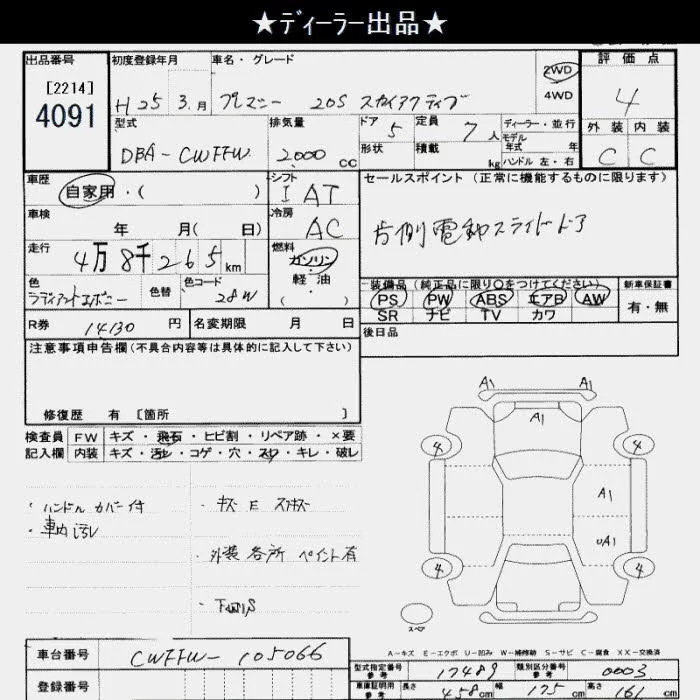 ★ディーラー出品★
出品番号
[2214]
4091
初度登録年月
H 25年 3.月
車名・グレード
プレマシー 20S スカイアクティブ
2WD
4WD
評価点
4
外装 内装
C C
型式
DBA-CWFFW
排気量
2000 CC
ドア 5
形状
定員 7人
積載 kg
ディーラー・並行
モデル
年式 年
ハンドル 左・右
車歴
自家用・( )
シフト
I AT
セールスポイント (正常に機能するものに限ります)
片側電動スライドドア
車検
年 月( 日)
冷房
AC
走行
4万8千265km
燃料
ガソリン
軽油
( )
色
ラディアントエボニー
色替
色コード
28W
装備品(純正品に限り○をつけてください)
PS PW ABS エアB AW
SR ナビ TV カワ
新車保証書
有・無
R券 14130 円
名変期限 月 日
後日品
注意事項申告欄(不具合内容等は具体的に記入して下さい)
修復歴 有 [箇所 ]
検査員
記入欄
FW キズ・飛石・ヒビ割・リペア跡・×要
内装 キズ・汚レ・コゲ・穴・スレ・キレ・破レ
・ハンドルカバー付
・車内汚レ
・キズ E スリキズ
・外装各所ペイント有
A1 A1
A1
4 4
A1
UA1
4 4
スペア
A-キズ E-エクボ U-凹み W-補修跡 S-サビ C-腐食 XX-交換済
車台番号 CWFFW-105066
登録番号
型式指定番号
参考
17489
類別区分番号
参考
0003
車庫証明用
参考
長さ 458cm
幅 175cm
高さ 161cm